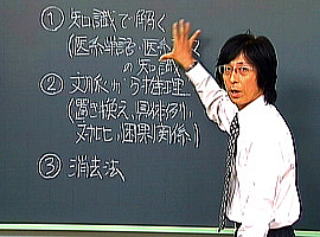 ① 知識で解く
(医系単語・医系
の知識)
② 文脈から推理
(置き換え、具体例、
対比、因果関係、)
③ 消去法